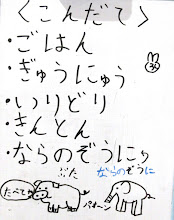 <こんだて>
・ごはん
・ぎゅうにゅう
・いりどり
・きんとん
・ならのぞうに
ぶた ならのぞうに
たべて
パオーン